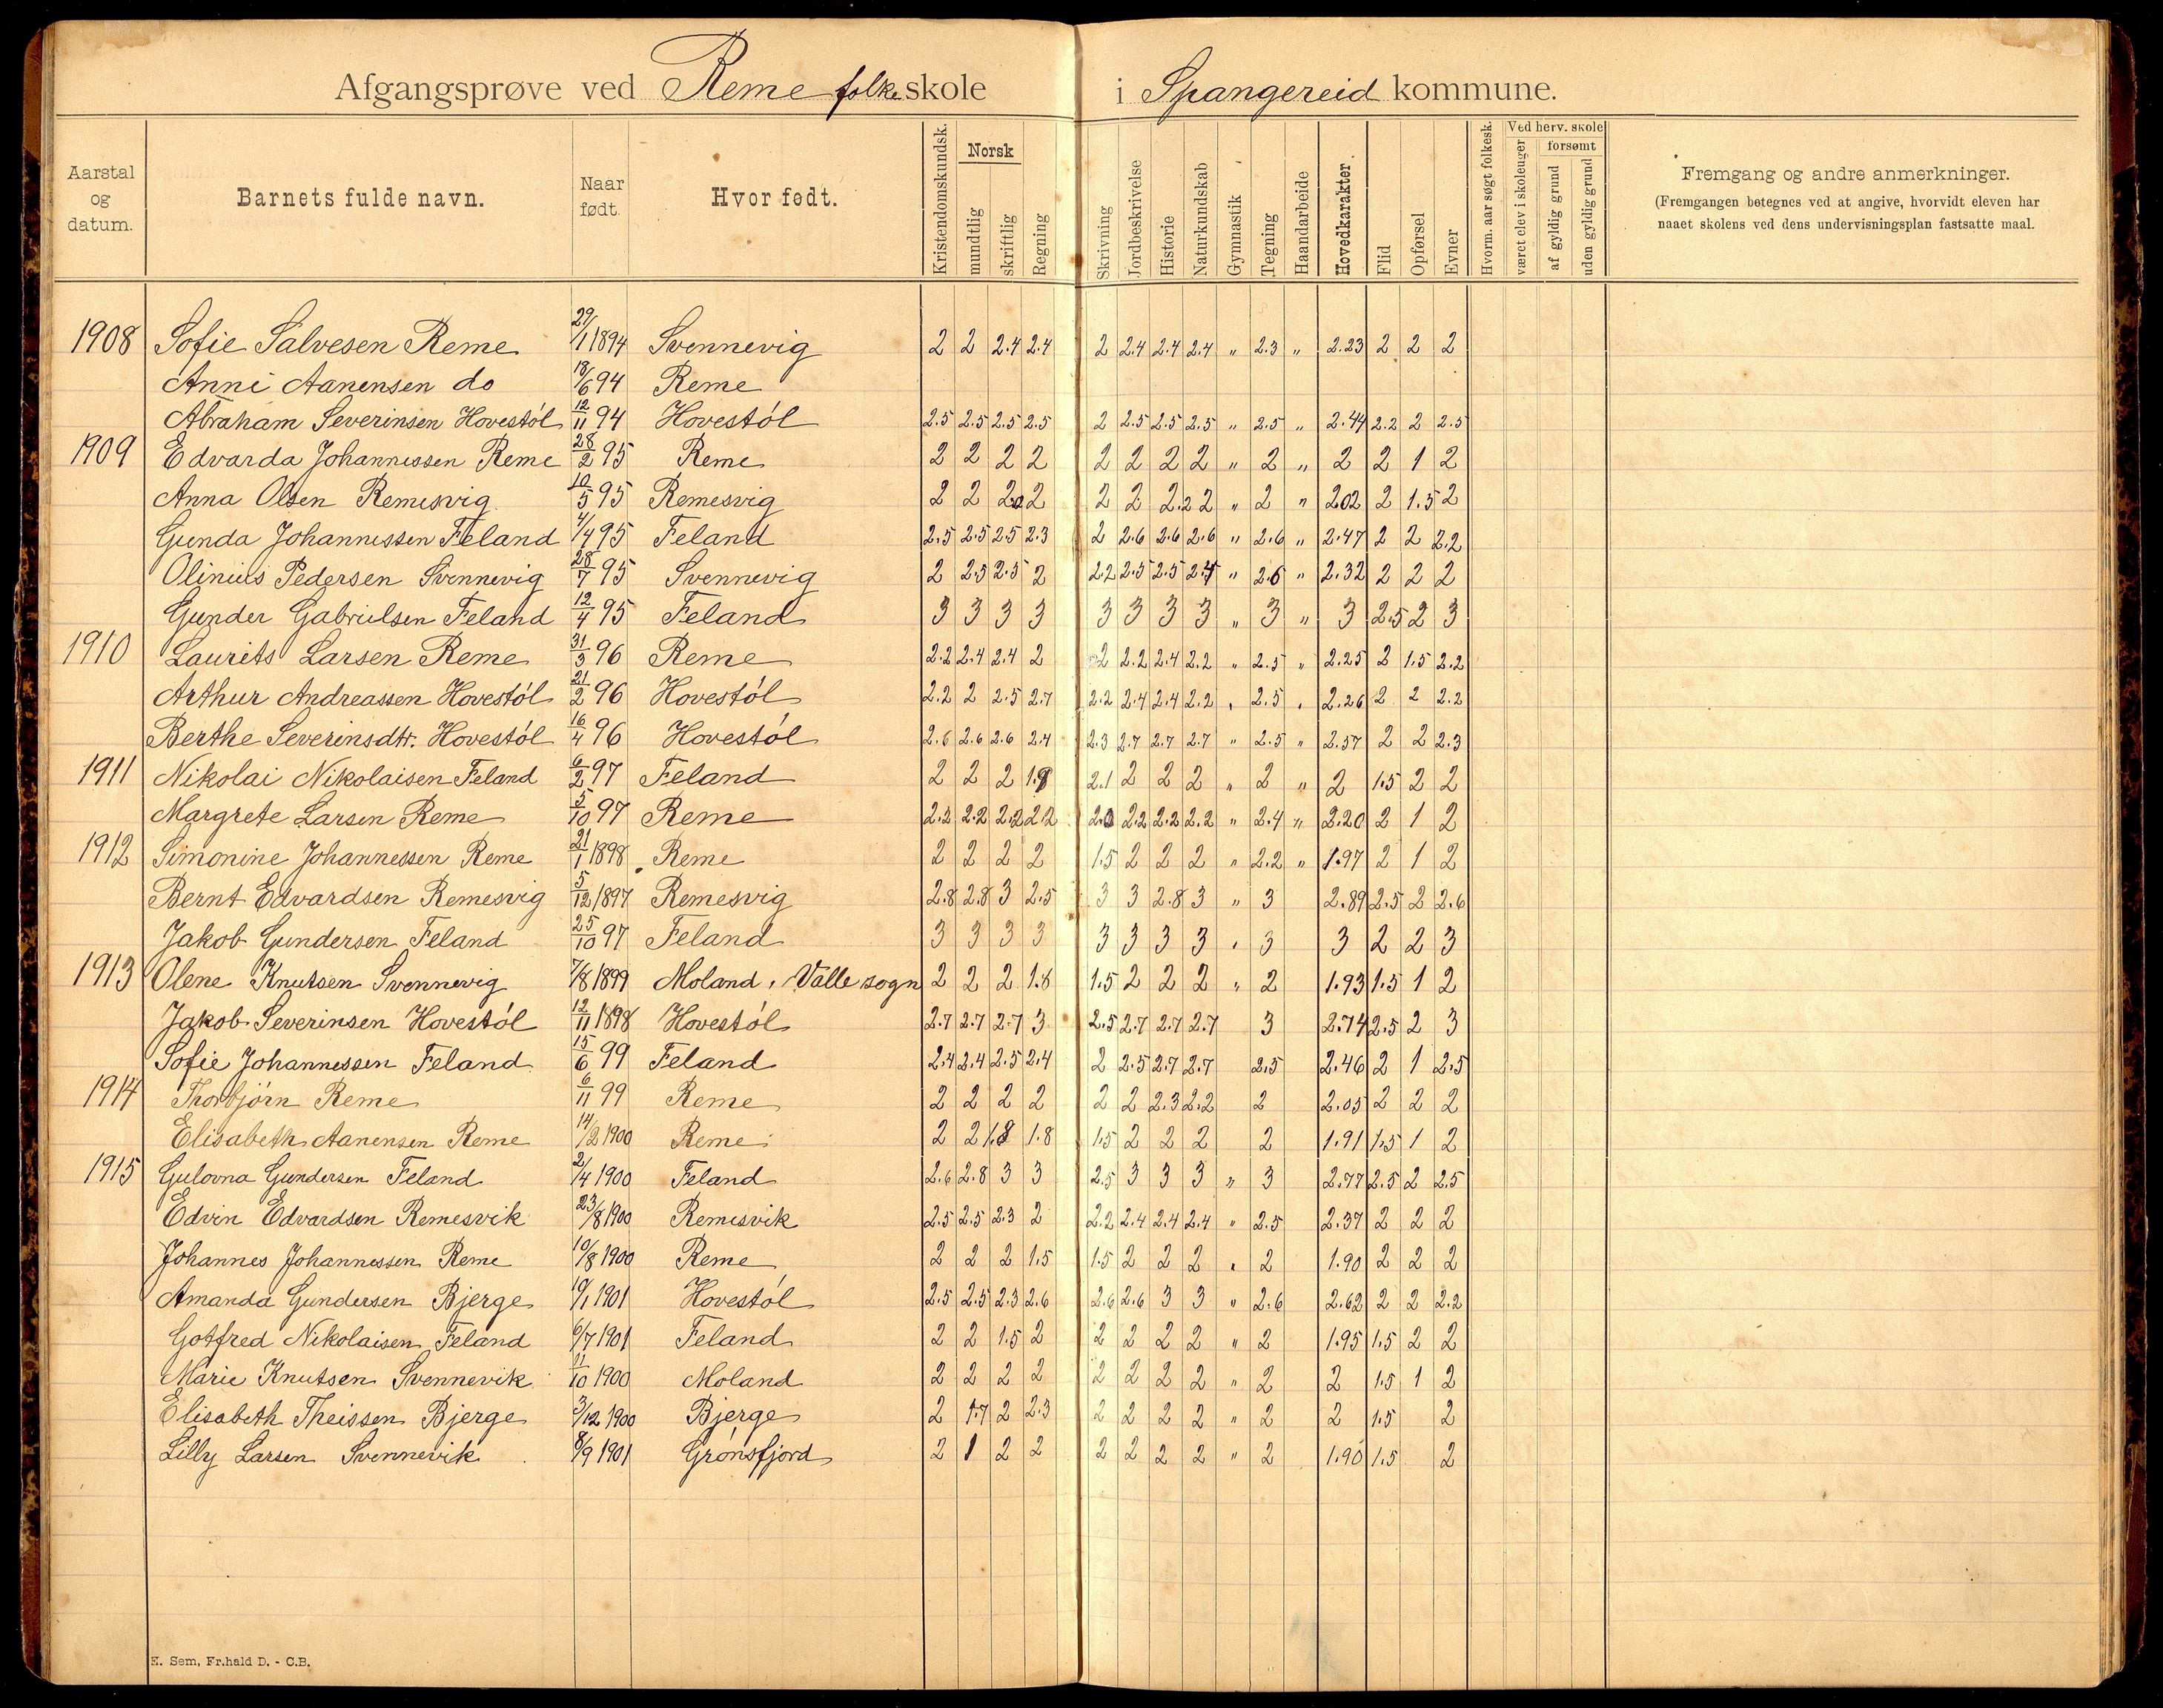 Afgangsprøve ved Reme folkeskole i Spangereid kommune.
Aarstal og datum. Barnets fulde navn. Naar født. Hvor født. Kristendomskundsk. Norsk mundtlig skriftlig Regning Skrivning Jordbeskrivelse Historie Naturkundskab Gymnastik Tegning Haandarbeide Hovedkarakter Flid Opførsel Evner Hvorm. aar søgt folkesk. Ved herv. skole været elev i skoleuger forsømt af gyldig grund uden gyldig grund Fremgang og andre anmerkninger.
(Fremgangen betegnes ved at angive, hvorvidt eleven har
naaet skolens ved dens undervisningsplan fastsatte maal.
1908 Sofie Salvesen Reme 29/1 1894 Svennevig 2 2 2.4 2.4 2 2.4 2.4 2.4 " 2.3 " 2.23 2 2 2
Anni Aanensen do 18/6 94 Reme
Abraham Severinsen Hovestól 12/11 94 Hovestól 2.5 2.5 2.5 2.5 2 2.5 2.5 2.5 " 2.5 " 2.44 2.2 2 2.5
1909 Edvarda Johannessen Reme 28/2 95 Reme 2 2 2 2 2 2 2 2 " 2 " 2 2 1 2
Anna Olsen Remesvig 10/5 95 Remesvig 2 2 2.0 2 2 2 2.2 2 " 2 " 2.02 2 1.5 2
Gunda Johannessen Feland 4/4 95 Feland 2.5 2.5 2.5 2.3 2 2.6 2.6 2.6 " 2.6 " 2.47 2 2 2.2
Olinius Pedersen Svennevig 28/7 95 Svennevig 2 2.5 2.5 2 2.2 2.5 2.5 2.4 " 2.6 " 2.32 2 2 2
Gunder Gabrielsen Feland 12/4 95 Feland 3 3 3 3 3 3 3 3 " 3 " 3 2.5 2 3
1910 Laurits Larsen Reme 31/3 96 Reme 2.2 2.4 2.4 2 2 2.2 2.4 2.2 " 2.5 " 2.25 2 1.5 2.2
Arthur Andreassen Hovestól 21/2 96 Hovestól 2.2 2 2.5 2.7 2.2 2.4 2.4 2.2 " 2.5 " 2.26 2 2 2.2
Berthe Severinsdtr. Hovestól 16/4 96 Hovestól 2.6 2.6 2.6 2.4 2.3 2.7 2.7 2.7 " 2.5 " 2.57 2 2 2.3
1911 Nikolai Nikolaisen Feland 6/2 97 Feland 2 2 2 1.8 2.1 2 2 2 " 2 " 2 1.5 2 2
Margrete Larsen Reme 5/10 97 Reme 2.2 2.2 2.2 2.2 2.0 2.2 2.2 2.2 " 2.4 " 2.20 2 1 2
1912 Simonine Johannessen Reme 21/1 1898 Reme 2 2 2 2 1.5 2 2 2 " 2.2 " 1.97 2 1 2
Bernt Edvardsen Remesvig 5/12 1897 Remesvig 2.8 2.8 3 2.5 3 3 2.8 3 " 3 2.89 2.5 2 2.6
Jakob Gundersen Feland 25/10 97 Feland 3 3 3 3 3 3 3 3 " 3 3 2 2 3
1913 Olene Knutsen Svennevig 7/8 1899 Moland, Valle sogn 2 2 2 1.8 1.5 2 2 2 " 2 1.93 1.5 1 2
Jakob Severinsen Hovestól 12/11 1898 Hovestól 2.7 2.7 2.7 3 2.5 2.7 2.7 2.7 3 2.74 2.5 2 3
Sofie Johannessen Feland 15/6 99 Feland 2.4 2.4 2.5 2.4 2 2.5 2.7 2.7 2.5 2.46 2 1 2.5
1914 Thorbjörn Reme 6/11 99 Reme 2 2 2 2 2 2 2.3 2.2 2 2.05 2 2 2
Elisabeth Aanensen Reme 14/2 1900 Reme 2 2 1.8 1.8 1.5 2 2 2 2 1.91 1.5 1 2
1915 Gulovna Gundersen Feland 2/4 1900 Feland 2.6 2.8 3 3 2.5 3 3 3 " 3 2.77 2.5 2 2.5
Edvin Edvardsen Remesvik 23/8 1900 Remesvik 2.5 2.5 2.3 2 2.2 2.4 2.4 2.4 " 2.5 2.37 2 2 2
Johannes Johannessen Reme 10/8 1900 Reme 2 2 2 1.5 1.5 2 2 2 " 2 1.90 2 2 2
Amanda Gundersen Bjerge 10/1 1901 Hovestól 2.5 2.5 2.3 2.6 2.6 2.6 3 3 " 2.6 2.62 2 2 2.2
Gotfred Nikolaisen Feland 6/7 1901 Feland 2 2 1.5 2 2 2 2 2 " 2 1.95 1.5 2 2
Marie Knutsen Svennevik 11/10 1900 Moland 2 2 2 2 2 2 2 2 " 2 2 1.5 1 2
Elisabeth Theissen Bjerge 3/12 1900 Bjerge 2 1.7 2 2.3 2 2 2 2 " 2 2 1.5 2
Lilly Larsen Svennevik 8/9 1901 Grónsfjord 2 1 2 2 2 2 2 2 " 2 1.90 1.5 2
E. Sem, Fr.hald D. - C.B.